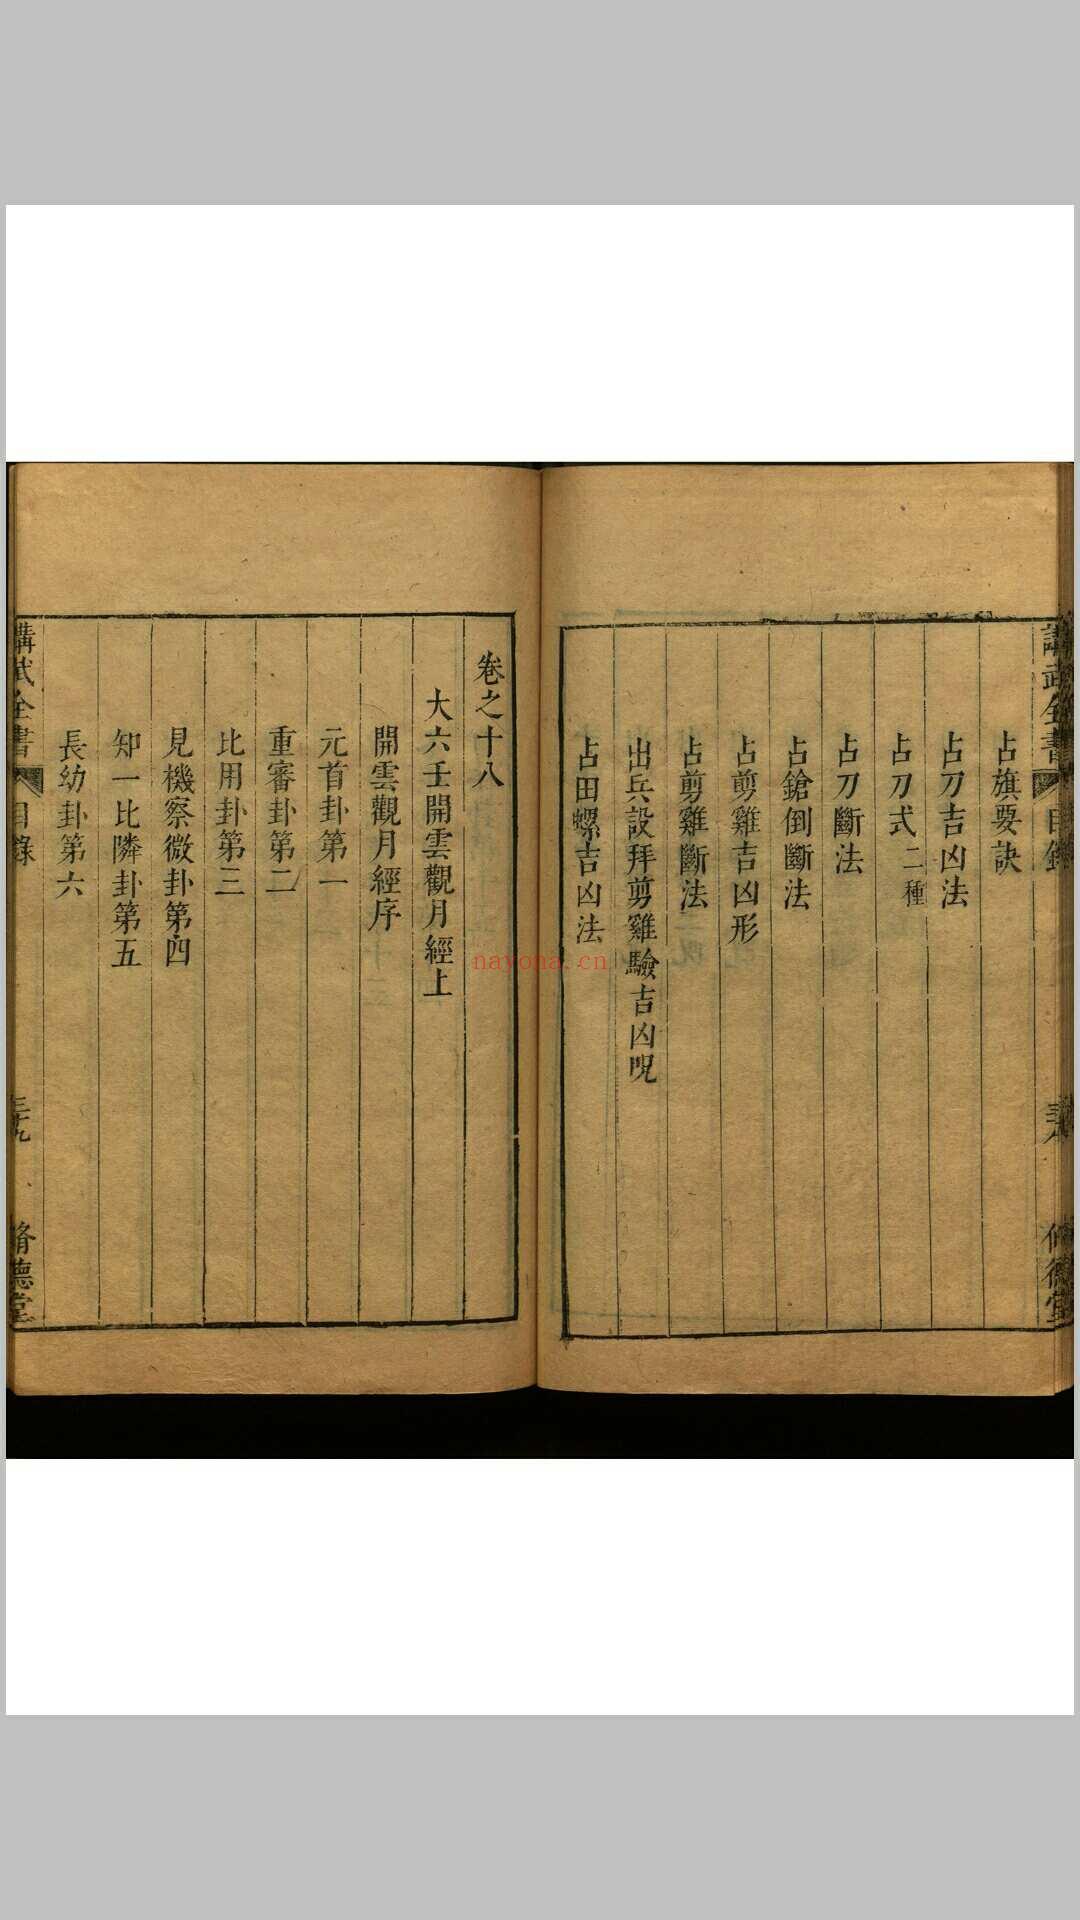 講武全書
目錄
三十八
脩德堂
占旗要訣
占刀吉凶法
占刀式二種
占刀斷法
占鎗倒斷法
占剪雞吉凶形
占剪雞斷法
出兵設拜剪雞驗吉凶呪
占田螺吉凶法
卷之十八
大六壬開雲觀月經上
開雲觀月經序
元首卦第一
重審卦第二
比用卦第三
見機察微卦第四
知一比隣卦第五
長幼卦第六
講武全書
目錄
三十九
脩德堂
nayona.cn